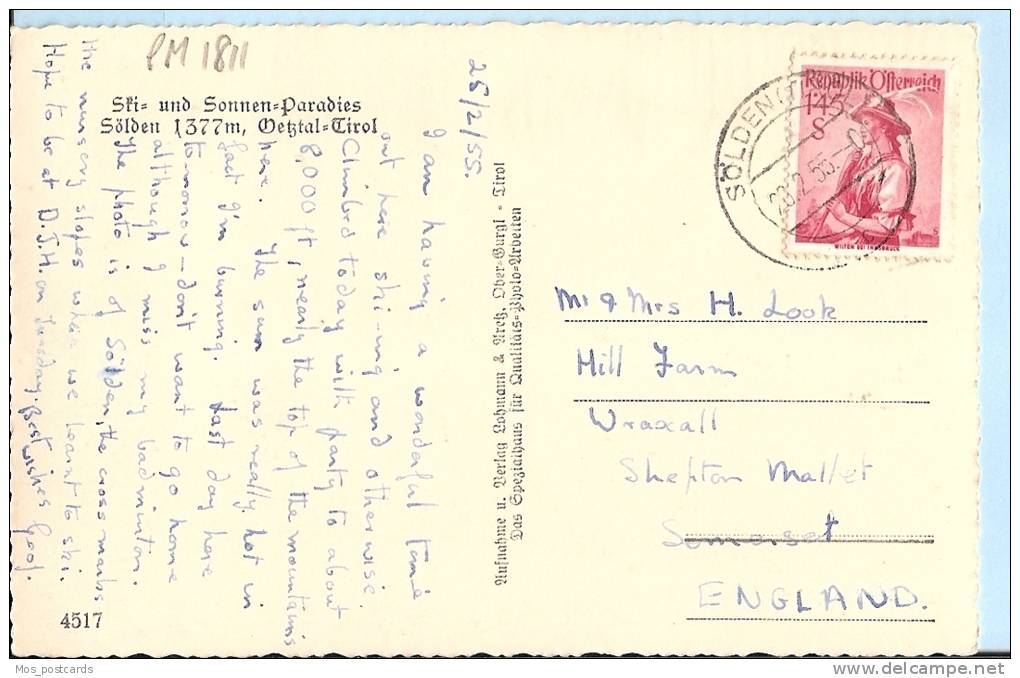 PM 1811
Ski- und Sonnen-Paradies
Sölden 1377m, Oetztal-Tirol
25/2/55.
I am having a wonderful time
out here ski-ing and otherwise.
Climbed today with party to about
8,000 ft, nearly the top of the mountains
here. The sun was really hot in
fact I'm burning. Last day here
tomorrow - don't want to go home
although I miss my badminton.
The photo is of Sölden, the cross marks
the nursery slopes where we learnt to ski.
Hope to be at D.J.H. on Tuesday. Best wishes
4517
Aufnahme u. Verlag Lohmann & Retz, Ober-Gurgl - Tirol
Das Spezialhaus für Qualitäts-Photo-Arbeiten
Republik Österreich
1.45
S
WILTEN BEI INNSBRUCK
SÖLDEN
Mr & Mrs H. Look
Hill Farm
Wraxall
Shepton Mallet
Somerset
ENGLAND.
Mos_postcards
delcampe.net